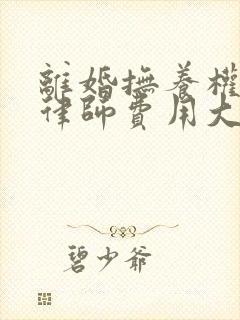 離婚撫養權
律師費用大
碧少爺